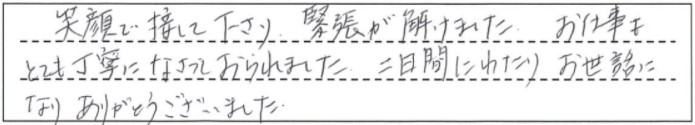 笑顔で接して下さり、緊張が解けました。お仕事も
とても丁寧になさっておられました。二日間にわたり お世話に
なり ありがとうございました。